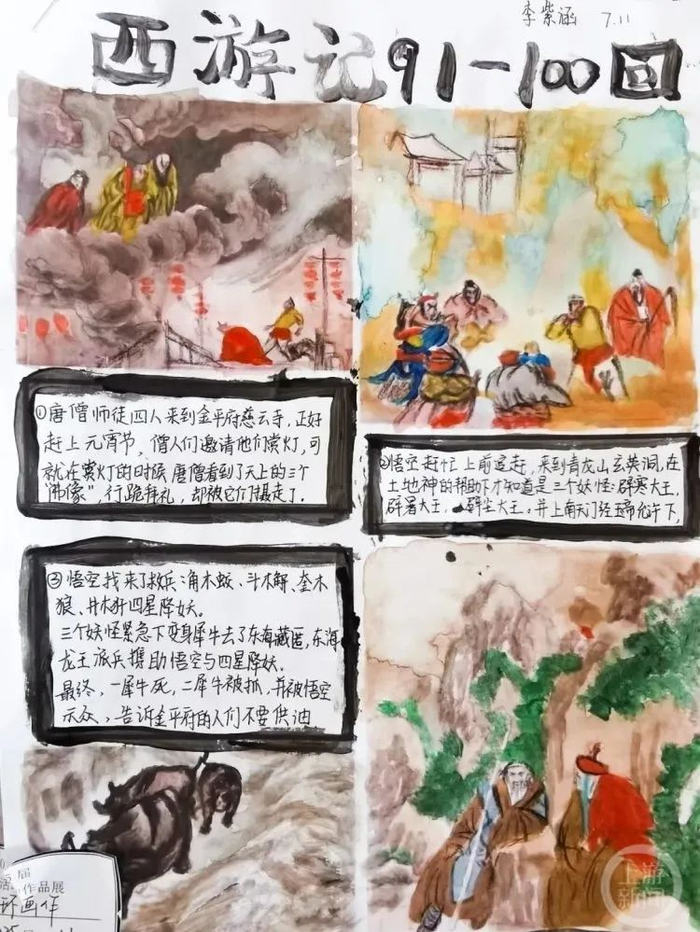 李紫涵 7.11
西游记91-100回
①唐僧师徒四人来到金平府慈云寺，正好
赶上元宵节，僧人们邀请他们赏灯，可
就在赏灯的时候唐僧看到了天上的三个
"佛像"，行跪拜礼，却被它们摄走了.
②悟空赶忙上前追赶，来到青龙山玄英洞，在
土地神的帮助下才知道是三个妖怪:辟寒大王，
辟暑大王，辟尘大王。并上南天门经玉帝允许下，
③悟空找来了救兵:角木蛟、斗木獬、奎木
狼、井木犴四星降妖。
三个妖怪紧急下变身犀牛去了东海藏匿，东海
龙王派兵携助悟空与四星降妖.
最终，一犀牛死，二犀牛被抓，并被悟空
示众，告诉金平府的人们不要供油
届
作品展
环画作
上游
新闻